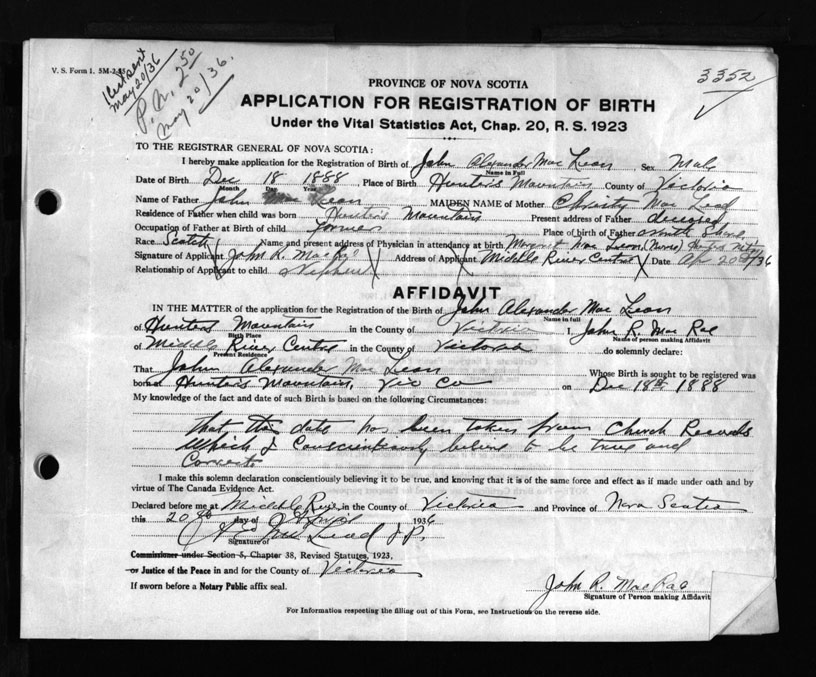 V. S. Form 1. 5M-2-35
Kent sent
May 20/36
P. N. 2 50
May 20/36.
3352
PROVINCE OF NOVA SCOTIA
APPLICATION FOR REGISTRATION OF BIRTH
Under the Vital Statistics Act, Chap. 20, R. S. 1923
TO THE REGISTRAR GENERAL OF NOVA SCOTIA:
I hereby make application for the Registration of Birth of John Alexander Mac Lean Sex Male
Name in Full
Date of Birth Dec 18 1888, Place of Birth Hunters Mountain County of Victoria
Month Day Year
Name of Father John Mac Lean MAIDEN NAME of Mother Christy Mac Leod
Residence of Father when child was born Hunters Mountain Present address of Father deceased
Occupation of Father at Birth of child Farmer Place of birth of Father North Shore
Race Scotch Name and present address of Physician in attendance at birth Margaret Mac Lean (Nurse) Hunters Mtn
Signature of Applicant John R. MacRae Address of Applicant Middle River Centre Date Apr 20th/36
Relationship of Applicant to child Nephew
AFFIDAVIT
IN THE MATTER of the application for the Registration of the Birth of John Alexander Mac Lean
Name in full
of Hunters Mountain in the County of Victoria I, John R. Mac Rae
Birth Place Name of person making Affidavit
of Middle River Centre in the County of Victoria do solemnly declare:
Present Residence
That John Alexander Mac Lean Whose Birth is sought to be registered was
born at Hunters Mountain, Vic Co on Dec 18th 1888
My knowledge of the fact and date of such Birth is based on the following Circumstances:
that this date has been taken from Church Records
which I Conscientiously believe to be true and
Correct.
I make this solemn declaration conscientiously believing it to be true, and knowing that it is of the same force and effect as if made under oath and by
virtue of The Canada Evidence Act.
Declared before me at Middle River, in the County of Victoria and Province of Nova Scotia
this 20th day of April 1936
Mac Leod J.P.
Signature of
Commissioner under Section 5, Chapter 38, Revised Statutes, 1923,
or Justice of the Peace in and for the County of Victoria
If sworn before a Notary Public affix seal.
John R. Mac Rae
Signature of Person making Affidavit
For Information respecting the filling out of this Form, see Instructions on the reverse side.